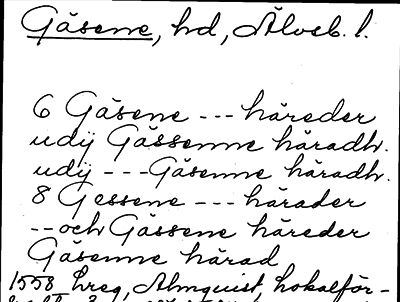 Gäsene, hd, Älvsb. l.
6 Gäsene --- häreder
udÿ Gässenne häradh.
udÿ --- Gäsenne häradh.
8 Gessene --- härader
-- och Gässene häreder
Gäsenne härad
1558 hreg, Almquist, Lokalför-